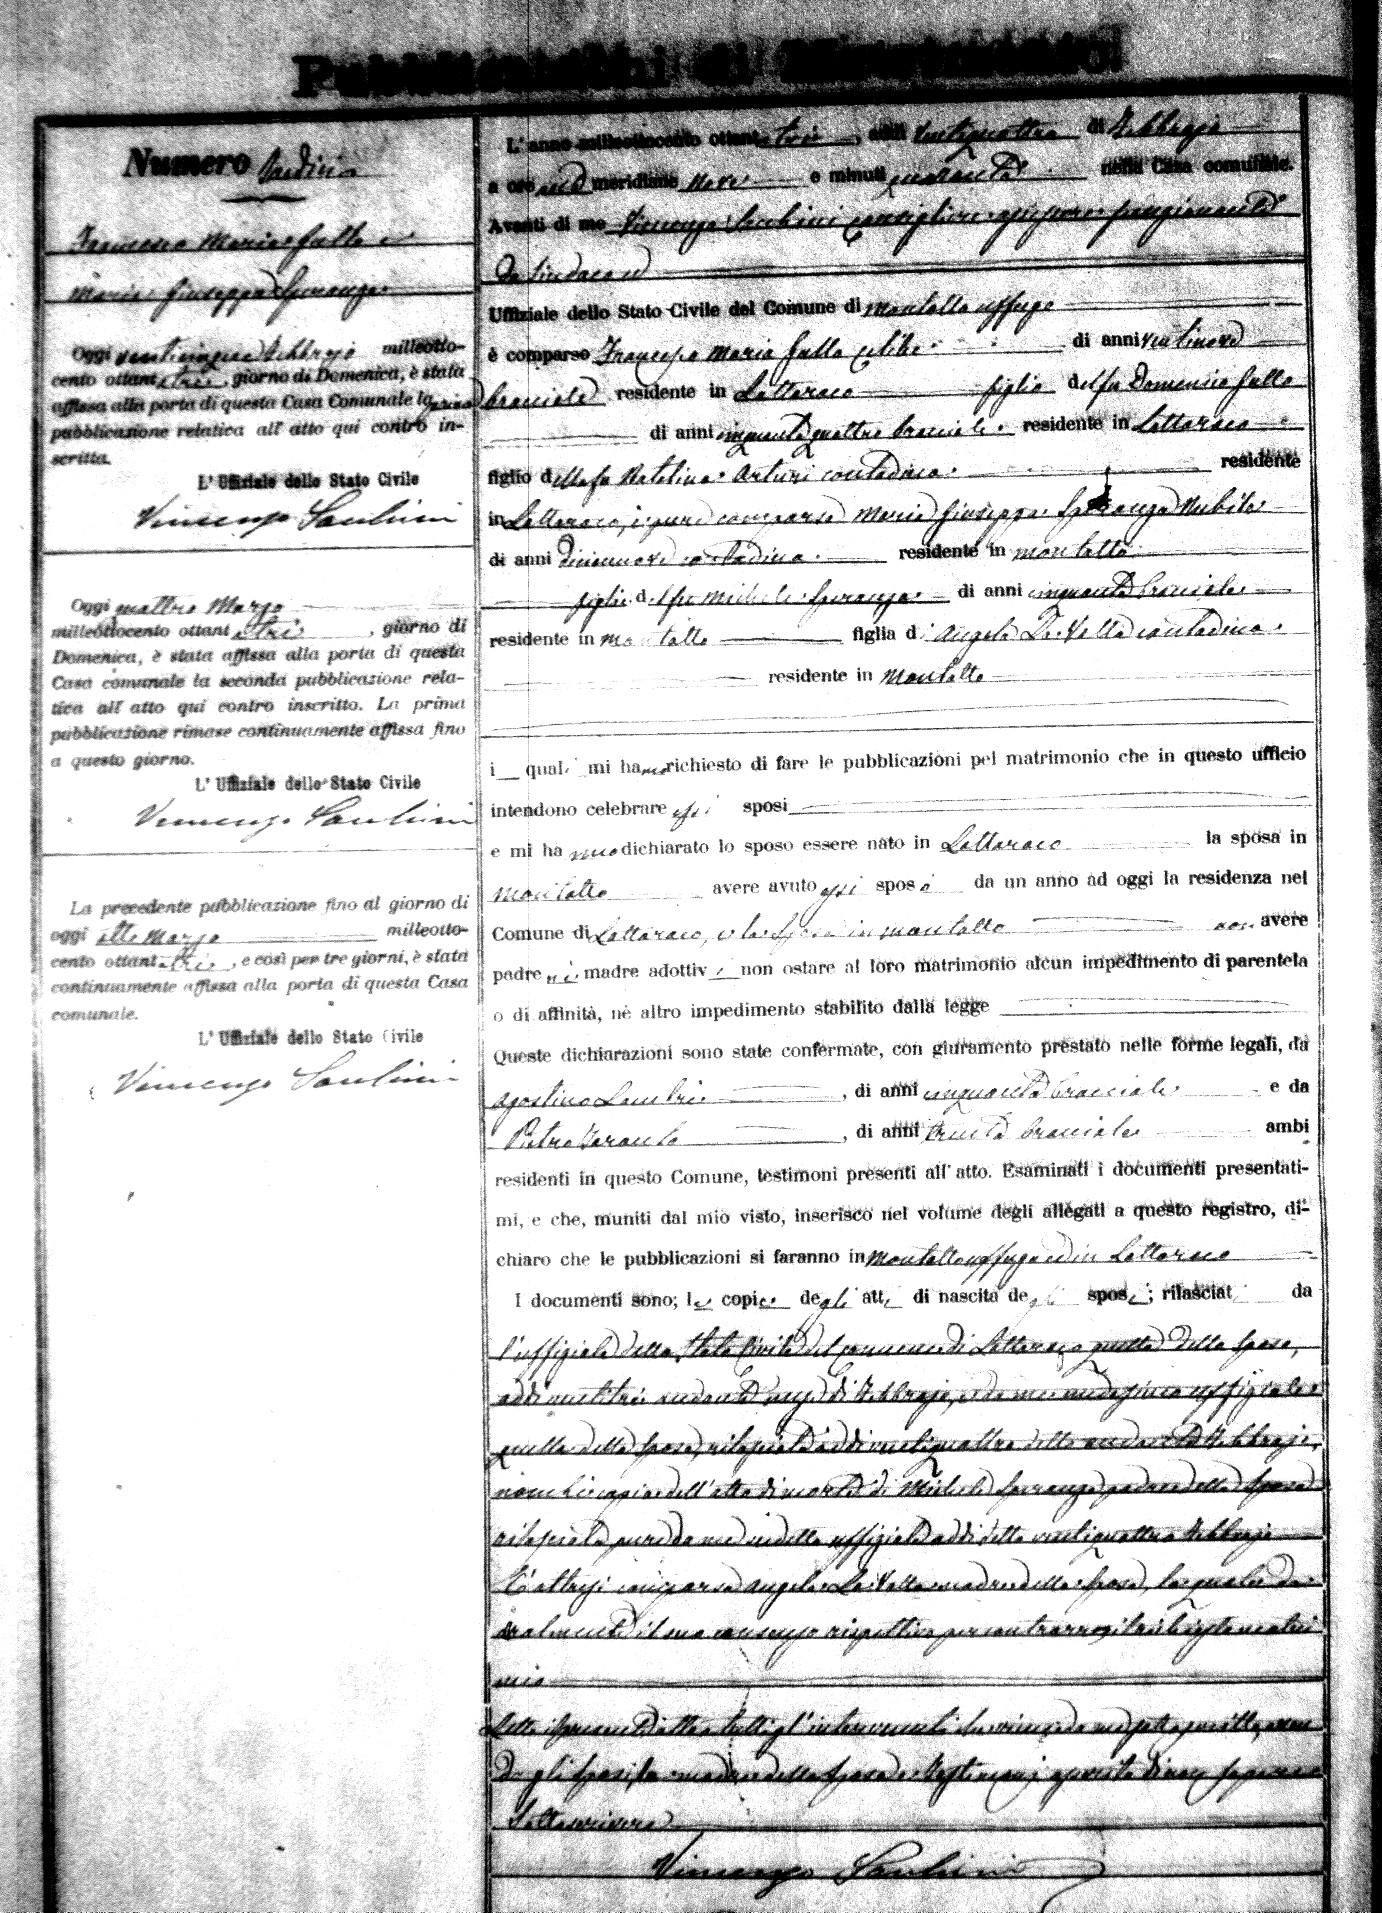 Pubblicazioni di Matrimonio
Numero Tredici
Francesco Maria Gallo e
Maria Giuseppa Speranza
Oggi venticinque Febbrajo milleotto-
cento ottantatrè, giorno di Domenica, è stata
affissa alla porta di questa Casa Comunale la prima
pubblicazione relativa all' atto qui contro in-
scritta.
L' Uffiziale dello Stato Civile
Vincenzo
Oggi quattro Marzo
milleottocento ottantatrè, giorno di
Domenica, è stata affissa alla porta di questa
Casa comunale la seconda pubblicazione rela-
tica all' atto qui contro inscritto. La prima
pubblicazione rimase continuamente affissa fino
a questo giorno.
L' Uffiziale dello Stato Civile
Vincenzo
La precedente pubblicazione fino al giorno di
oggi otto Marzo milleotto-
cento ottantatrè, e così per tre giorni, è stata
continuamente affissa alla porta di questa Casa
comunale.
L' Uffiziale dello Stato Civile
Vincenzo
L' anno milleottocento ottantatrè, addì ventiquattro di Febbrajo
a ore anti meridiane nove e minuti quaranta nella Casa comunale.
Avanti di me Vincenzo consigliere assessore funzionante
da Sindaco
Uffiziale dello Stato Civile del Comune di Montalto Uffugo
è comparso Francesco Maria Gallo celibe di anni ventinove
bracciale residente in Lattaraco figlio del fu Domenico Gallo
di anni cinquantaquattro bracciale residente in Lattaraco
figlio della fu Natalina Arturi contadina residente
in Lattaraco, è pure comparsa Maria Giuseppa Speranza Nubile
di anni diciannove contadina residente in Montalto
figlia del fu Michele Speranza di anni cinquanta bracciale
residente in Montalto figlia di Angela La Valle contadina
residente in Montalto
i quali mi hanno richiesto di fare le pubblicazioni pel matrimonio che in questo ufficio
intendono celebrare essi sposi
e mi hanno dichiarato lo sposo essere nato in Lattaraco la sposa in
Montalto avere avuto essi sposi da un anno ad oggi la residenza nel
Comune di Lattaraco, e la sposa in Montalto non avere
padre nè madre adottivi non ostare al loro matrimonio alcun impedimento di parentela
o di affinità, nè altro impedimento stabilito dalla legge
Queste dichiarazioni sono state confermate, con giuramento prestato nelle forme legali, da
Agostino, di anni cinquanta bracciale e da
Pietro, di anni trenta bracciale ambi
residenti in questo Comune, testimoni presenti all' atto. Esaminati i documenti presentati-
mi, e che, muniti dal mio visto, inserisco nel volume degli allegati a questo registro, di-
chiaro che le pubblicazioni si faranno in Montalto Uffugo ed in Lattaraco
I documenti sono; le copie degli atti di nascita degli sposi; rilasciati da
l'uffiziale dello Stato Civile del comune di Lattaraco quella dello sposo,
addì ventitrè andante mese di Febbrajo, e da me medesimo uffiziale
quella della sposa, rilasciata addì ventiquattro detto andante Febbrajo,
nonchè copia dell'atto di morte di Michele Speranza padre della sposa
rilasciata pure da me suddetto uffiziale addì detto ventiquattro Febbrajo
È altresì comparsa Angela La Valle madre della sposa, la quale da
il suo consenso rispettivo per contrarre matri
mio
Letto il presente atto a tutti gl'intervenuti da me sottoscritto,
da gli sposi, la madre della sposa e testimoni di non sapere
sottoscrivere
Vincenzo